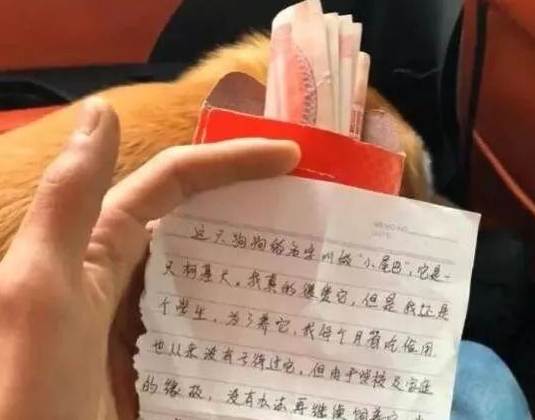 MEMO NO.
DATE
这只狗狗的名字叫做"小尾巴",它是一
只柯基犬,我真的很爱它,但是我还是
个学生,为了养它,我每个月省吃俭用
也从来没有亏待过它,但由于学校及家庭
的缘故,没有办法再继续饲养它